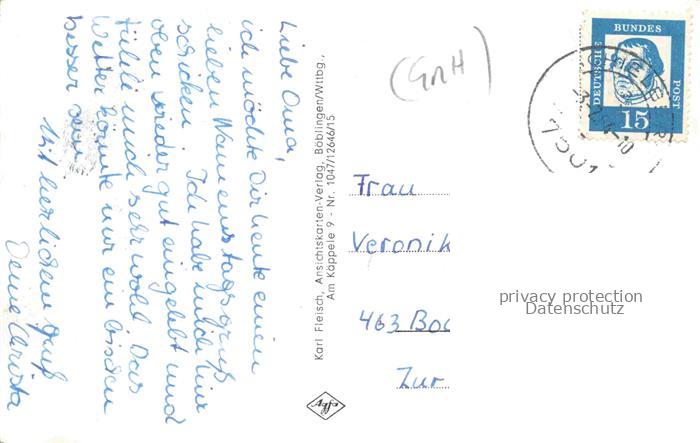 Liebe Oma,
ich möchte Dir heute einen
lieben Namenstagsgruß
schicken. Ich habe mich hier
oben wieder gut eingelebt und
fühle mich sehr wohl. Das
Wetter könnte nur ein bischen
besser sein.
Mit herzlichem Gruß
Deine Christa
Karl Fleisch, Ansichtskarten-Verlag, Böblingen/Wttbg.,
Am Käppele 9 - Nr. 1047/12646/15
Agfa
(GnH)
DEUTSCHE
BUNDES
POST
15
Frau
Veronik
463 Boc
Zur
privacy protection
Datenschutz